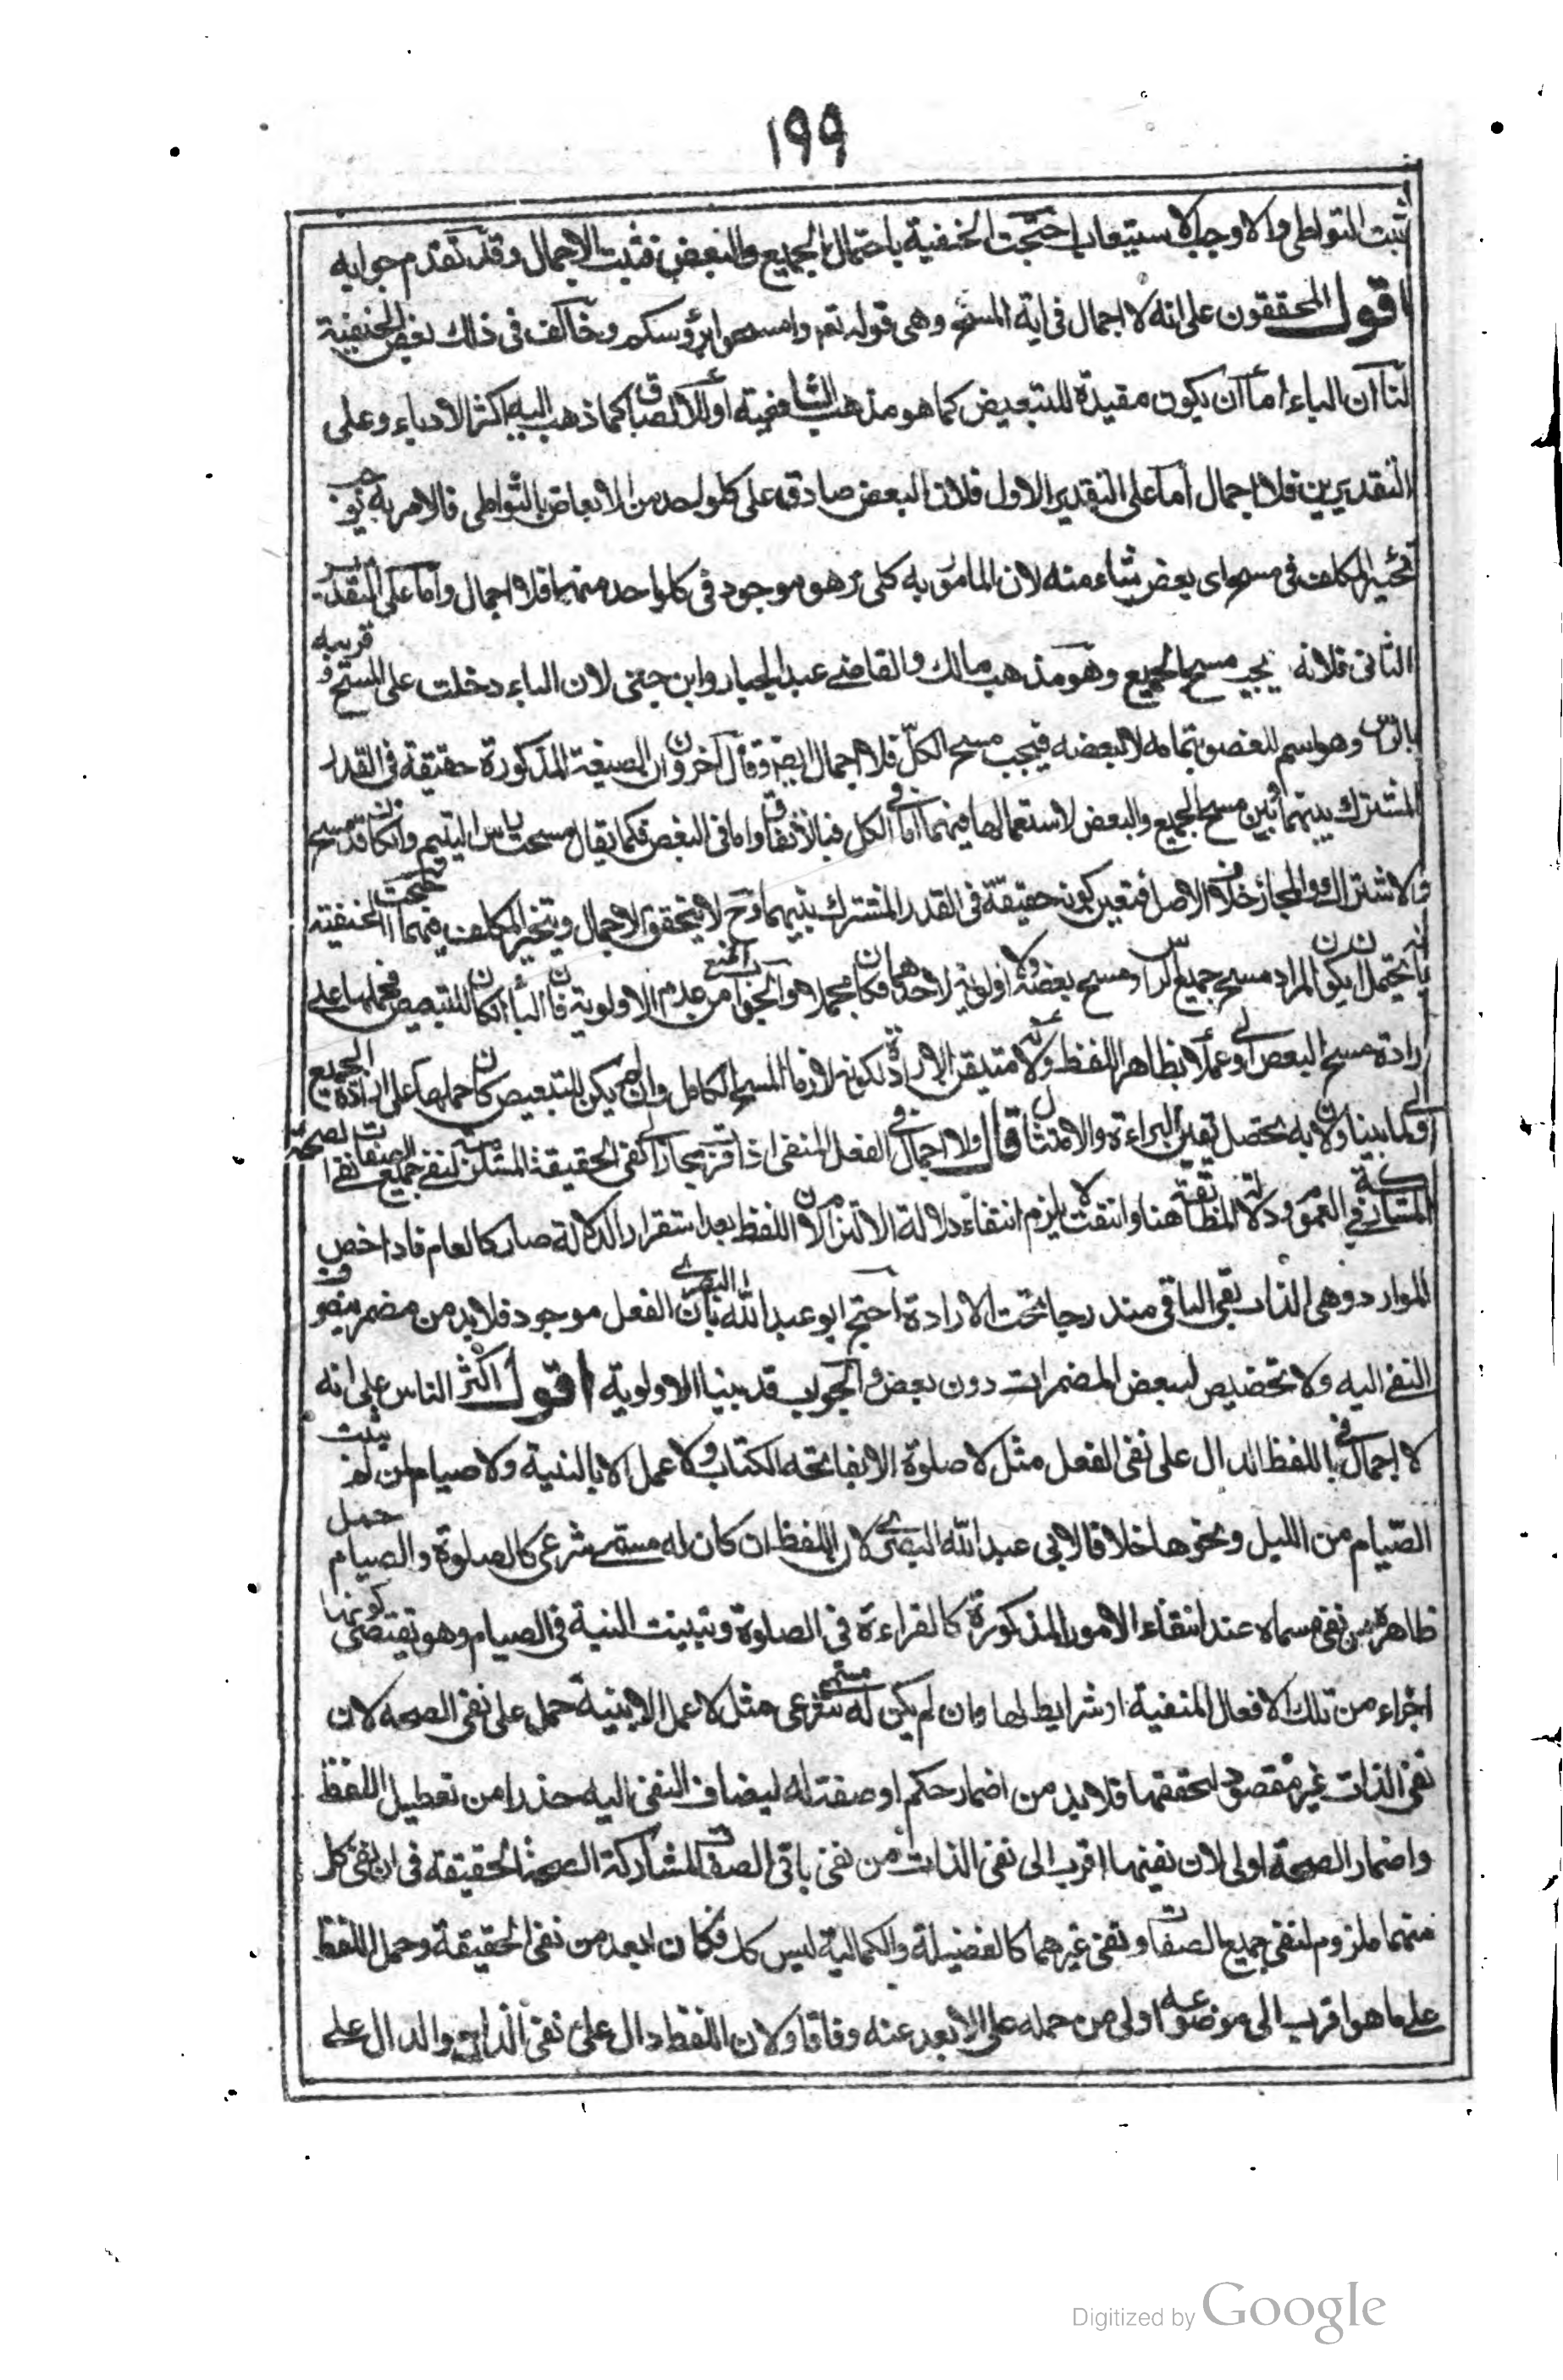 ١٩٩
ثبت التواطى والا وجب الاستيعاب احتجت الحنفية باحتمال الجميع والبعض فثبت الاجمال وقد تقدم جوابه
اقول المحققون على انه لا اجمال فى اية المسح وهى قوله تعم وامسحوا برؤسكم وخالف فى ذلك بعض الحنفية
لنا ان الباء اما ان يكون مفيدة للتبعيض كما هو مذهب الشافعية او للالصاق كما ذهب اليه اكثر الادباء وعلى
التقديرين فلا اجمال اما على التقدير الاول فلان البعض صادق على كل واحد من الابعاض بالتواطى فالامر به
تخيير المكلف فى مسح اى بعض شاء منه لان المامور به كلى وهو موجود فى كل واحد منهما فلا اجمال واما على التقدير
الثانى فلانه يجب مسح الجميع وهو مذهب مالك والقاضى عبد الجبار وابن جنى لان الباء دخلت على المسح وقربه
بالراس وهو اسم للعضو بتمامه لا لبعضه فيجب مسح الكل فلا اجمال ايضا وقال اخرون ان الصيغة المذكورة حقيقة فى القدر
المشترك بينهما اى بين مسح الجميع والبعض لاستعمالها فيهما اما فى الكل فبالاتفاق واما فى البعض فكما يقال مسحت براس اليتيم وان كان قد مسح
والاشتراك والمجاز خلاف الاصل فتعين كونه حقيقة فى القدر المشترك بينهما وح لا يتحقق الاجمال ويتخير المكلف فيهما احتجت الحنفية
بانه يحتمل ان يكون المراد مسح جميع الراس ومسح بعضه ولا اولوية لاحدهما فكان مجملا والجواب المنع من عدم الاولوية فان الباء ان كان للتبعيض فحملها على
ارادة مسح البعض اولى عملا بظاهر اللفظ ولانه متيقن الارادة لكونه لازما لمسح الكامل وان لم يكن للتبعيض كان حملها على ارادة الجميع
اولى لما بينا ولان به تحصل تيقن البراءة والامتثال قال ولا اجمال فى الفعل المنفى اذ اقرب مجازا لنفى الحقيقة المستلزمة لنفى جميع الصفات نفى الصحة
المشاركة فى العموم ودلالة المطابقة هنا وان انتفت لا يلزم انتفاء دلالة الالتزام لان اللفظ بعد استقرار الدلالة صار كالعام فاذا خص
الموارد وهى الذات بقى الباقى مندرجا تحت الارادة احتج ابو عبد الله البصرى بان الفعل موجود فلابد من مضمر ينصرف
النفى اليه ولا تخصيص لبعض المضمرات دون بعض والجواب قد بينا الاولوية اقول اكثر الناس على انه
لا اجمال فى اللفظ الدال على نفى الفعل مثل لا صلوة الا بفاتحة الكتاب ولا عمل الا بالنية ولا صيام لمن لم يبيت
الصيام من الليل ونحوها خلافا لابى عبد الله البصرى لان اللفظ ان كان له مسمى شرعى كالصلوة والصيام حمل
ظاهره من نفى مسماه عند انتفاء الامور المذكورة كالقراءة فى الصلوة وتبييت النية فى الصيام وهو يقتضى كونها
اجزاء من تلك الافعال المنفية او شرايط لها وان لم يكن له مسمى شرعى مثل لا عمل الا بنية حمل على نفى الصحة لان
نفى الذات غير مقصود لتحققها فلابد من اضمار حكم او صفة له ليضاف النفى اليه حذرا من تعطيل اللفظ
واضمار الصحة اولى لان نفيها اقرب الى نفى الذات من نفى باقى الصفات لمشاركة الصحة الحقيقة فى ان نفى كل
منهما ملزوم لنفى جميع الصفات ونفى غيرهما كالفضيلة والكمالية ليس كك فكان ابعد من نفى الحقيقة وحمل اللفظ
على ما هو اقرب الى موضوعه اولى من حمله على الابعد عنه وفاقا ولان اللفظ دال على نفى الذات والدال على
Digitized by Google